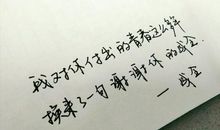 我对你付出的青春这么多年
换来了一句谢谢你的成全
—成全